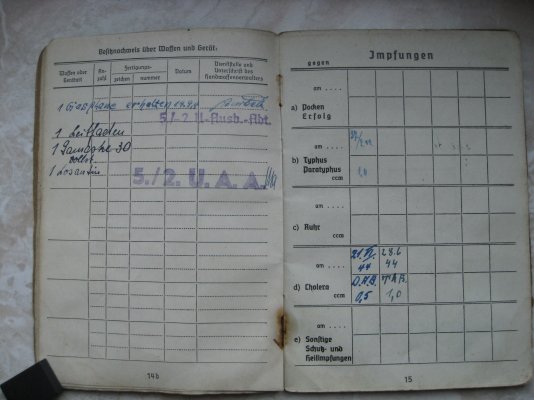 Besitznachweis über Waffen und Gerät.
Waffen oder Gerätteil
An-
zahl
Fertigungs-
zeichen
nummer
Datum
Dienststelle und
Unterschrift des
Handwaffenverwalters
1 Gasplane erhalten
5./2.U-Ausb.-Abt.
1 Leitfaden
1 Gasmaske 30
1 Losantin
5./2. U. A. A.
14b
Impfungen
gegen
am . . . .
a) Pocken
Erfolg
am . . . .
b) Typhus
Paratyphus
ccm
1,0
am . . . .
c) Ruhr
ccm
am . . . .
44
28.6
44
d) Cholera
ccm
0,5
1,0
am . . . .
e) Sonstige
Schutz- und
Heilimpfungen
15